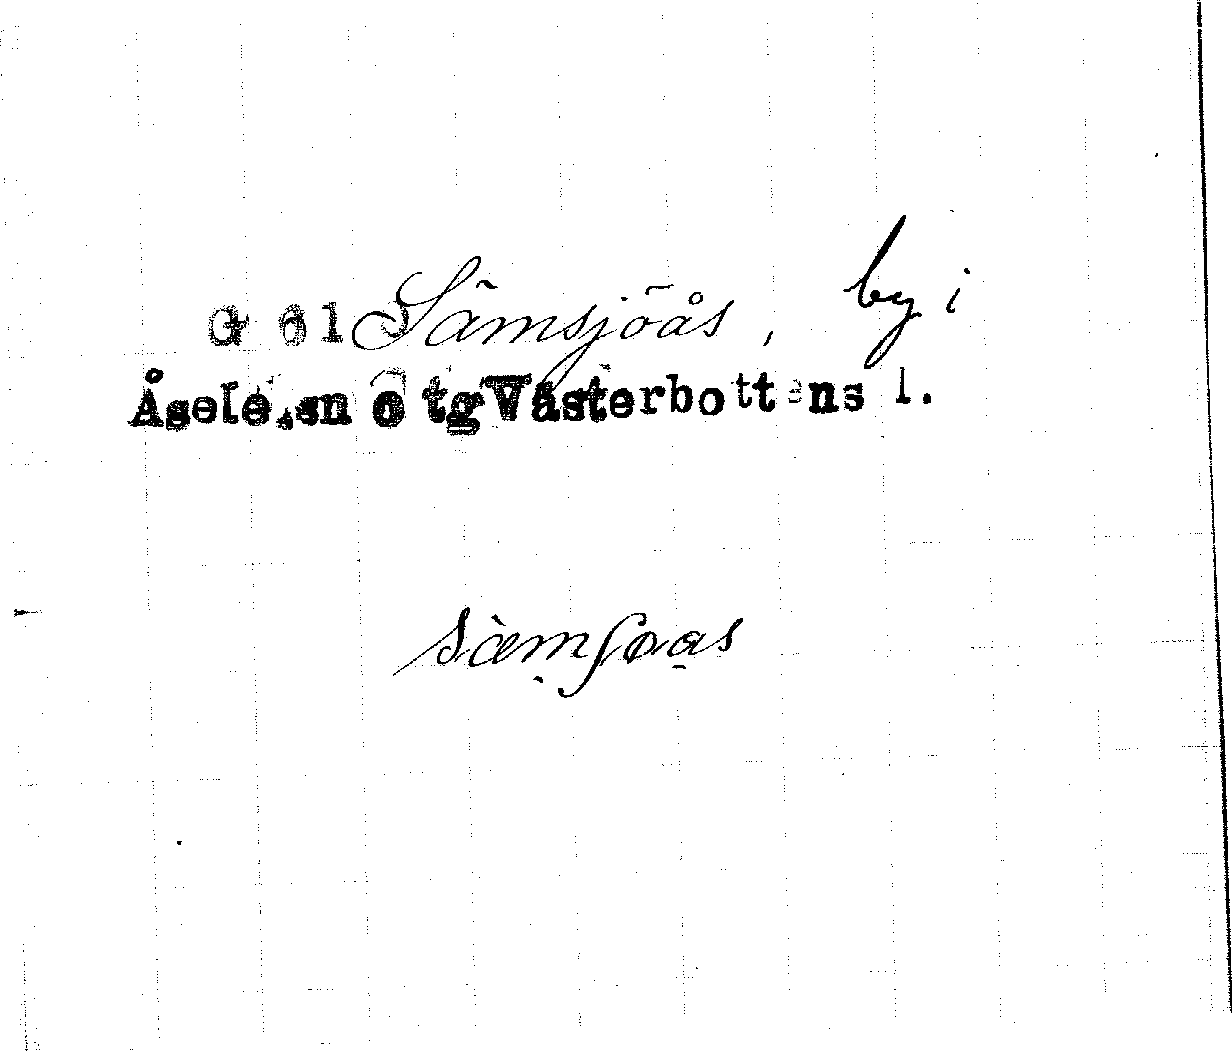 Sämsjöås, by i
Åsele sn o tg Västerbottens l.
sæmʃoas